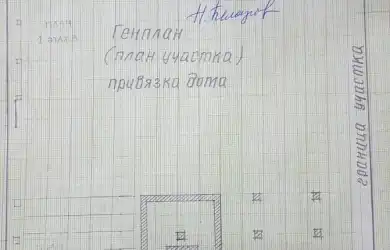 план
1 этажа
Генплан
(план участка)
привязка дома
граница участка